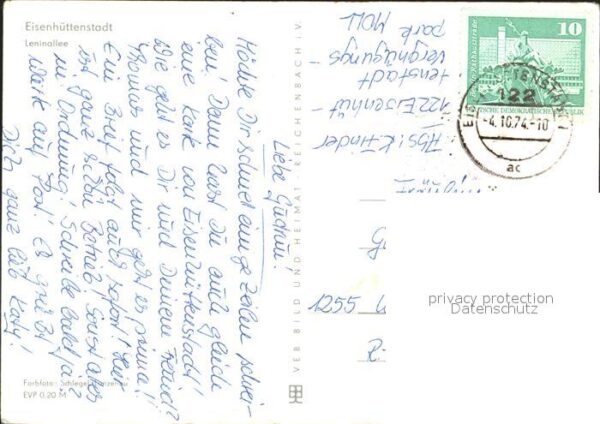 Eisenhüttenstadt
Leninallee
Liebe Gudrun!
Möchte Dir schnell einige Zeilen schrei-
ben. Dann hast Du auch gleich
eine Karte von Eisenhüttenstadt!
Wie geht es Dir und Deinem Freund?
Thomas und mir geht es prima!!
Ein Brief folgt auch sofort! Hier
ist ganz schön Betrieb! Sonst alles
in Ordnung! Schreibe bald, ja?
Warte auf Post! Es grüßt
Dich ganz lieb Katy!
Farbfoto: Schlegel,
EVP 0,20 M
VEB BILD UND HEIMAT REICHENBACH I. V.
Abs: K. Finder
122 Eisenhüt-
tenstadt
Vergnügungs-
park MOLL
10
DEUTSCHE DEMOKRATISCHE REPUBLIK
EISENHÜTTENSTADT 1
122
-4.10.74.-10
ac
1255
privacy protection
Datenschutz